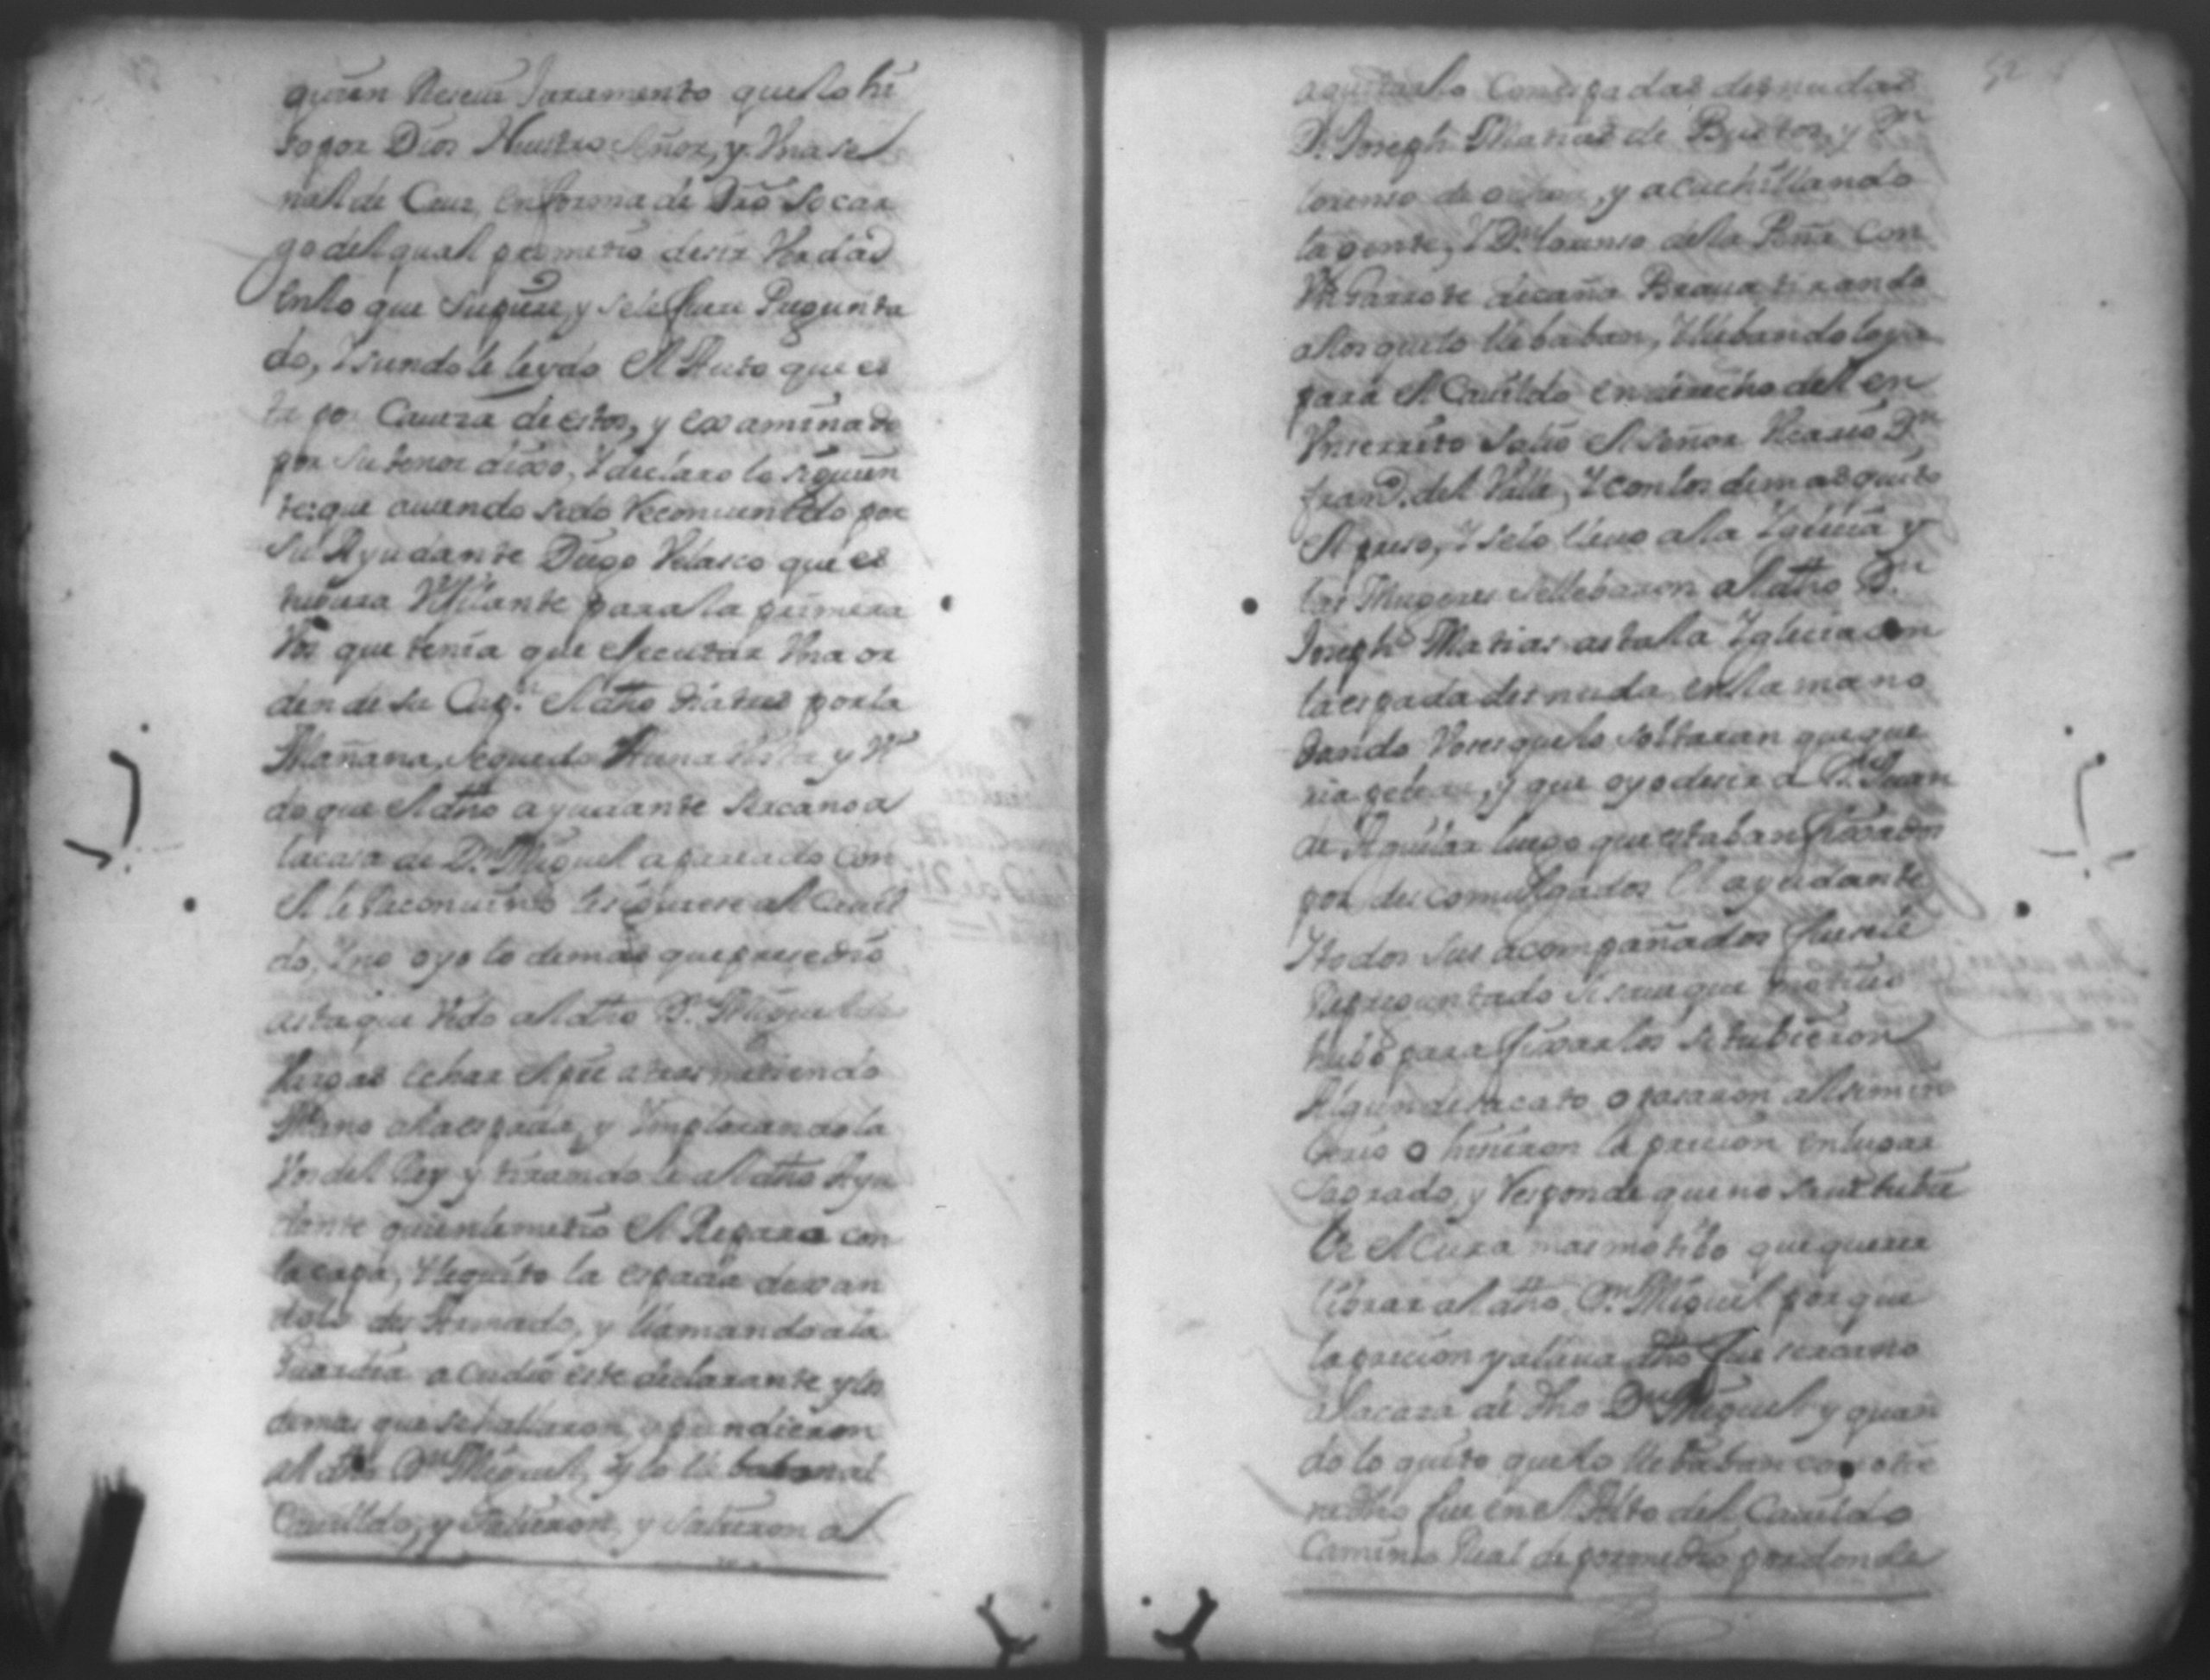 quien Reseui Juramento que lo hi
so por Dios Nuestro Señor, y Vna se
ñal de Cruz en forma de Dro so car
go del qual prometio desir Verdad
en lo que supiere y sele fuere Pregunta
do, Y siendole leydo el Auto que es
ta por Caueza de estos, y examinado
por su tenor dixo, Y declaro lo siguien
te: que auiendo sido Reconuenido por
su Ayudante Diego Velasco que es
tubiera Vijilante para la primera
Vos que tenia que executar Vna or
den de su Cap.n el dho dia tres por la
Mañana, se quedo Auna Vista y Vi
do que el dho ayudante sercano a
la casa de D.n Miguel apareado con
el le Reconuino le siguiese al Cauil
do, Y no oyo lo demas que presedio
asta que Vido al dho D.n Miguel de
Vargas echar el pie atras metiendo
Mano a la espada, y Ymplorando la
Vos del Rey y tirandole al dho Ayu
dante quien le metio el Reparo con
la capa, Y le quito la espada dexan
dolo des Armado, y llamando a la
Guardia acudio este declarante y los
demas que se hallaron aprendieron
al dho D.n Miguel, y lo llebaban al
Cauildo, y salieron, y salieron a
quitarlo Con espadas desnudas
D.n Joseph Matias de Bustos, y D.n
Lorenso de, y acuchillando
la gente, Y D.n Lorenso de la Peña con
Vn Garrote de caña Braua tirando
a los que lo llebaban, Y llebandolo ya
para el Cauildo en derecho del en
Vn serrito salio el señor Vicario D.n
Fran.co del Valle, Y con los demas quito
el preso, Y se lo lleuo a la Yglecia y
las Mugeres se llebaron al dho D.n
Joseph Matias asta la Yglecia con
la espada desnuda en la mano
dando Voses que lo soltaran que que
ria pelear, y que oyo desir a D.n Juan
de Aguilar luego que estaban fixados
por descomulgados el ayudante
Y todos sus acompañados fuele
Representado si saue que motiuo
hubo para fixarlos si tubieron
Algun desacato o pasaron al simen
terio o hisieron la pricion en lugar
sagrado, y Responde que no saue tubie
se el Cura mas motibo que querer
librar al dho D.n Miguel por que
la pricion ya lleua dho fue sercano
a la caza de dho D.n Miguel y quan
do lo quito que lo llebaban como tie
ne dho fue en el Alto del Cauildo
Camino Real de por medio por donde